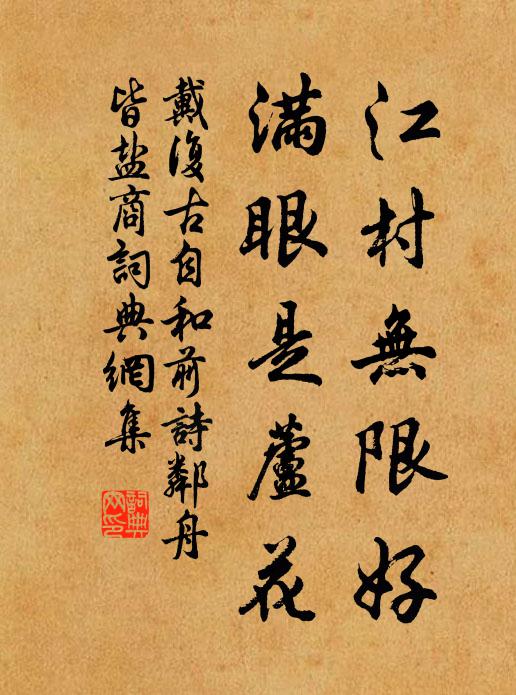 江村無限好
滿眼是蘆花
戴復古自和前詩鄰舟
皆鹽商詞典網集
詞典
網印